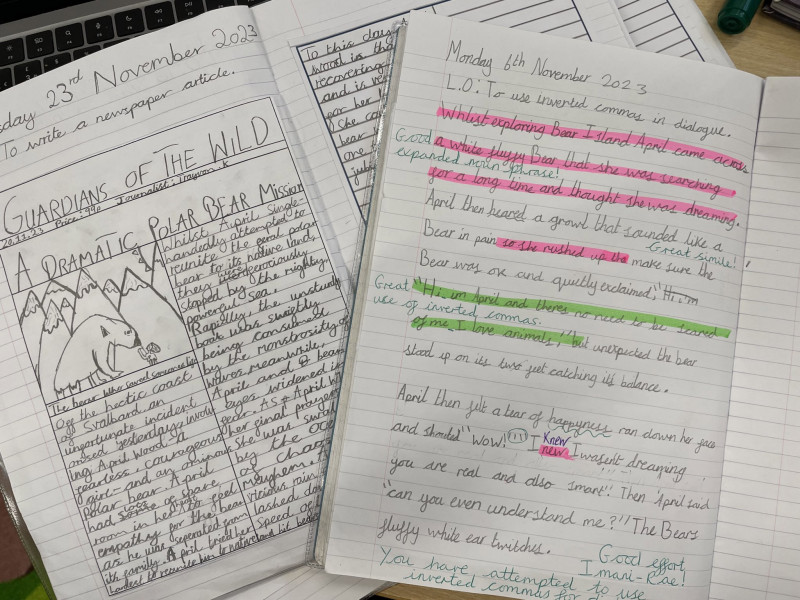 sday 23rd November 2023
To write a newspaper article.
GUARDIANS OF THE WILD
20.11.23 Price: 99p Journalist:
A DRAMATIC POLAR BEAR Mission
The bear who saved someones life
Off the hectic coast
of Svalbard an
unfortunate incident
arised yesterday, involv
ing April Wood - a
fearless, courageous
girl - and an ominous
polar bear. April
had of spare
room in her to feel
empathy for the bear
as he was seperated from
its family. April tried her
hardest to reunite her to native land
Whilst April single-
handedly attempted to
reunite the polar
bear to its native land,
they ferociously
stopped by the mighty,
powerful sea.
Rapidly, the unsturdy
boat was swiftly
being consumed
by the monstrosity of
waves meanwhile,
April and bear
eyes widened in
fear. As April w
her final prayer
She was swal
by the oc
of chaos
Mayhem. A
vicious rain
lashed do
Speed of
To this day
Wood is the
recovering
and is ve
for her
She ca
bear
one
Monday 6th November 2023
L.O: To use inverted commas in dialogue.
Whilest exploring Bear Island April came across
Good a white fluffy Bear that she was searching
expanded noun phrase!
for a long time and thought she was dreaming.
April then heared a growl that sounded like a
Great simile!
Bear in pain so she rushed up the make sure the
Bear was ok and quietly exclaimed, "Hi, im
Great "Hi, im April and theres no need to be scared
use of inverted commas.
of me, I love animals," but unexpected the bear
stood up on its two just catching its balance.
April then felt a tear of happyness ran down her face
and shouted "Wow! I knew new I wasent dreaming
you are real and also smart". Then April said
"can you even understand me?" The Bears
fluffy white ear twitches.
Good effort
Imani-Rae!
You have attempted to use
inverted commas for